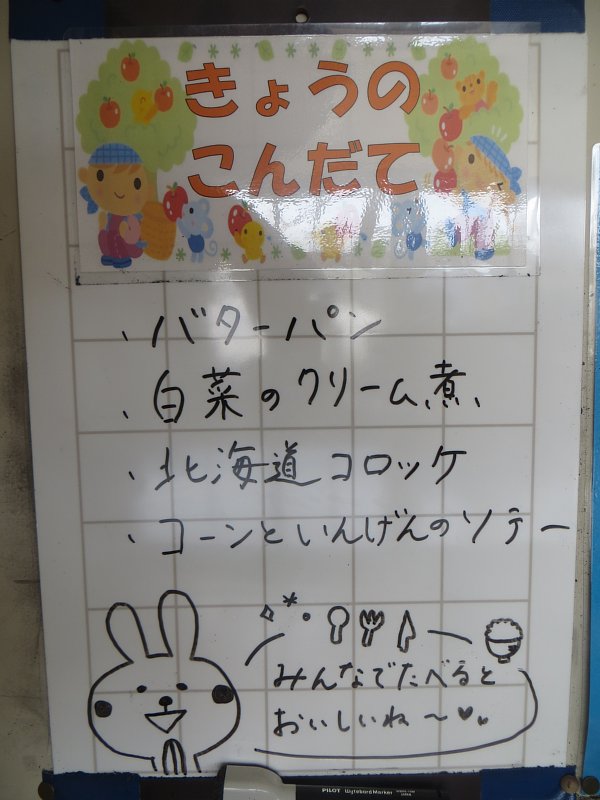 きょうの
こんだて
・バターパン
・白菜のクリーム煮
・北海道コロッケ
・コーンといんげんのソテー
みんなでたべると
おいしいね〜♥♥
PILOT Wyteboard Marker